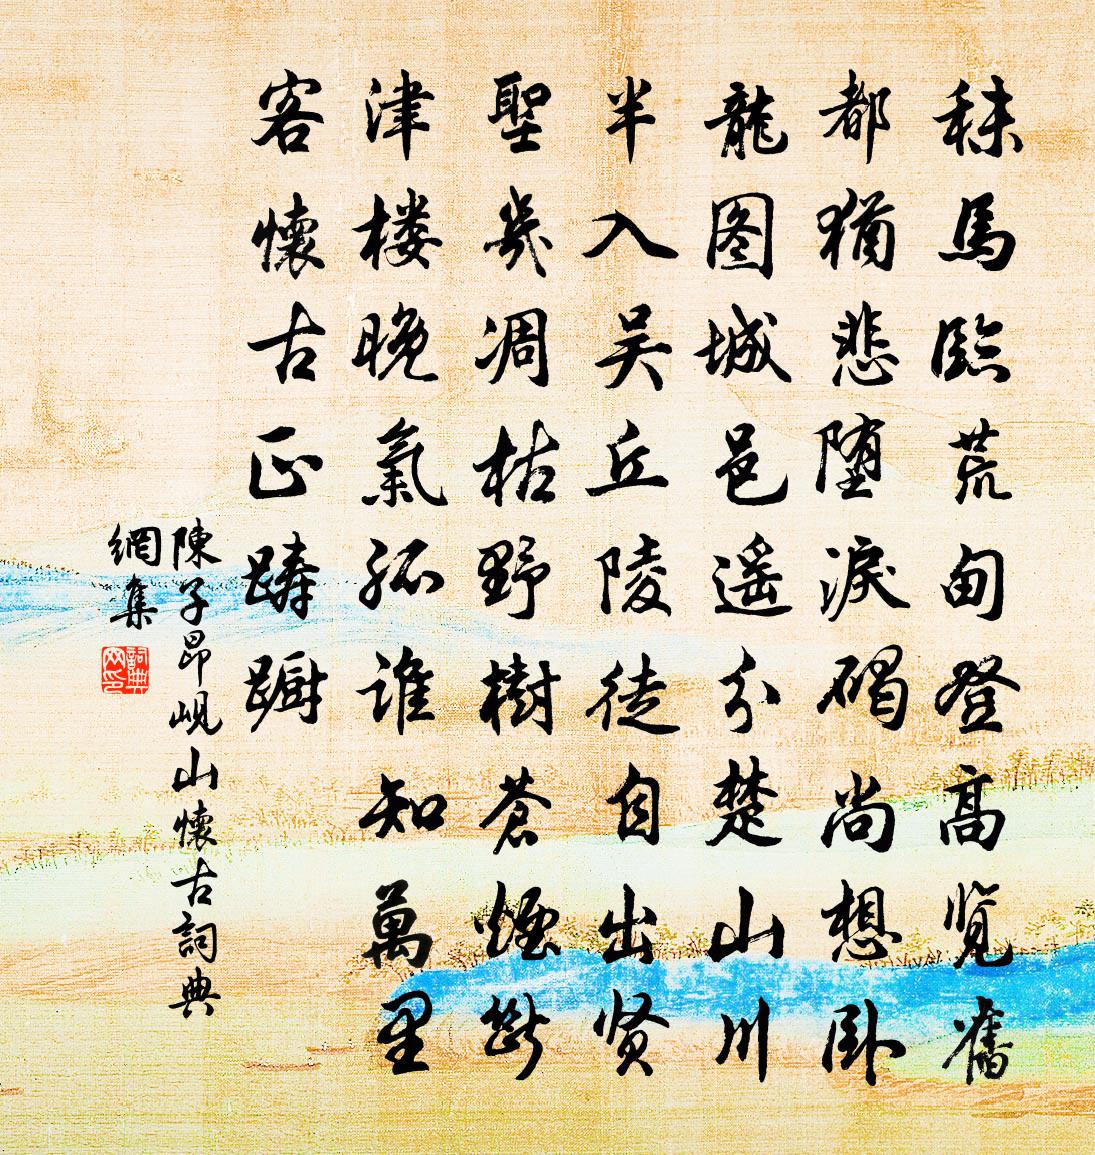 秣馬臨荒甸登高览舊
都猶悲堕淚碣尚想卧
龍图城邑遥分楚山川
半入吴丘陵徒自出贤
聖幾凋枯野樹蒼煙斷
津楼晚氣孤誰知萬里
客懷古正踌蹰
陳子昂峴山懷古詞典
網集
詞典
网印